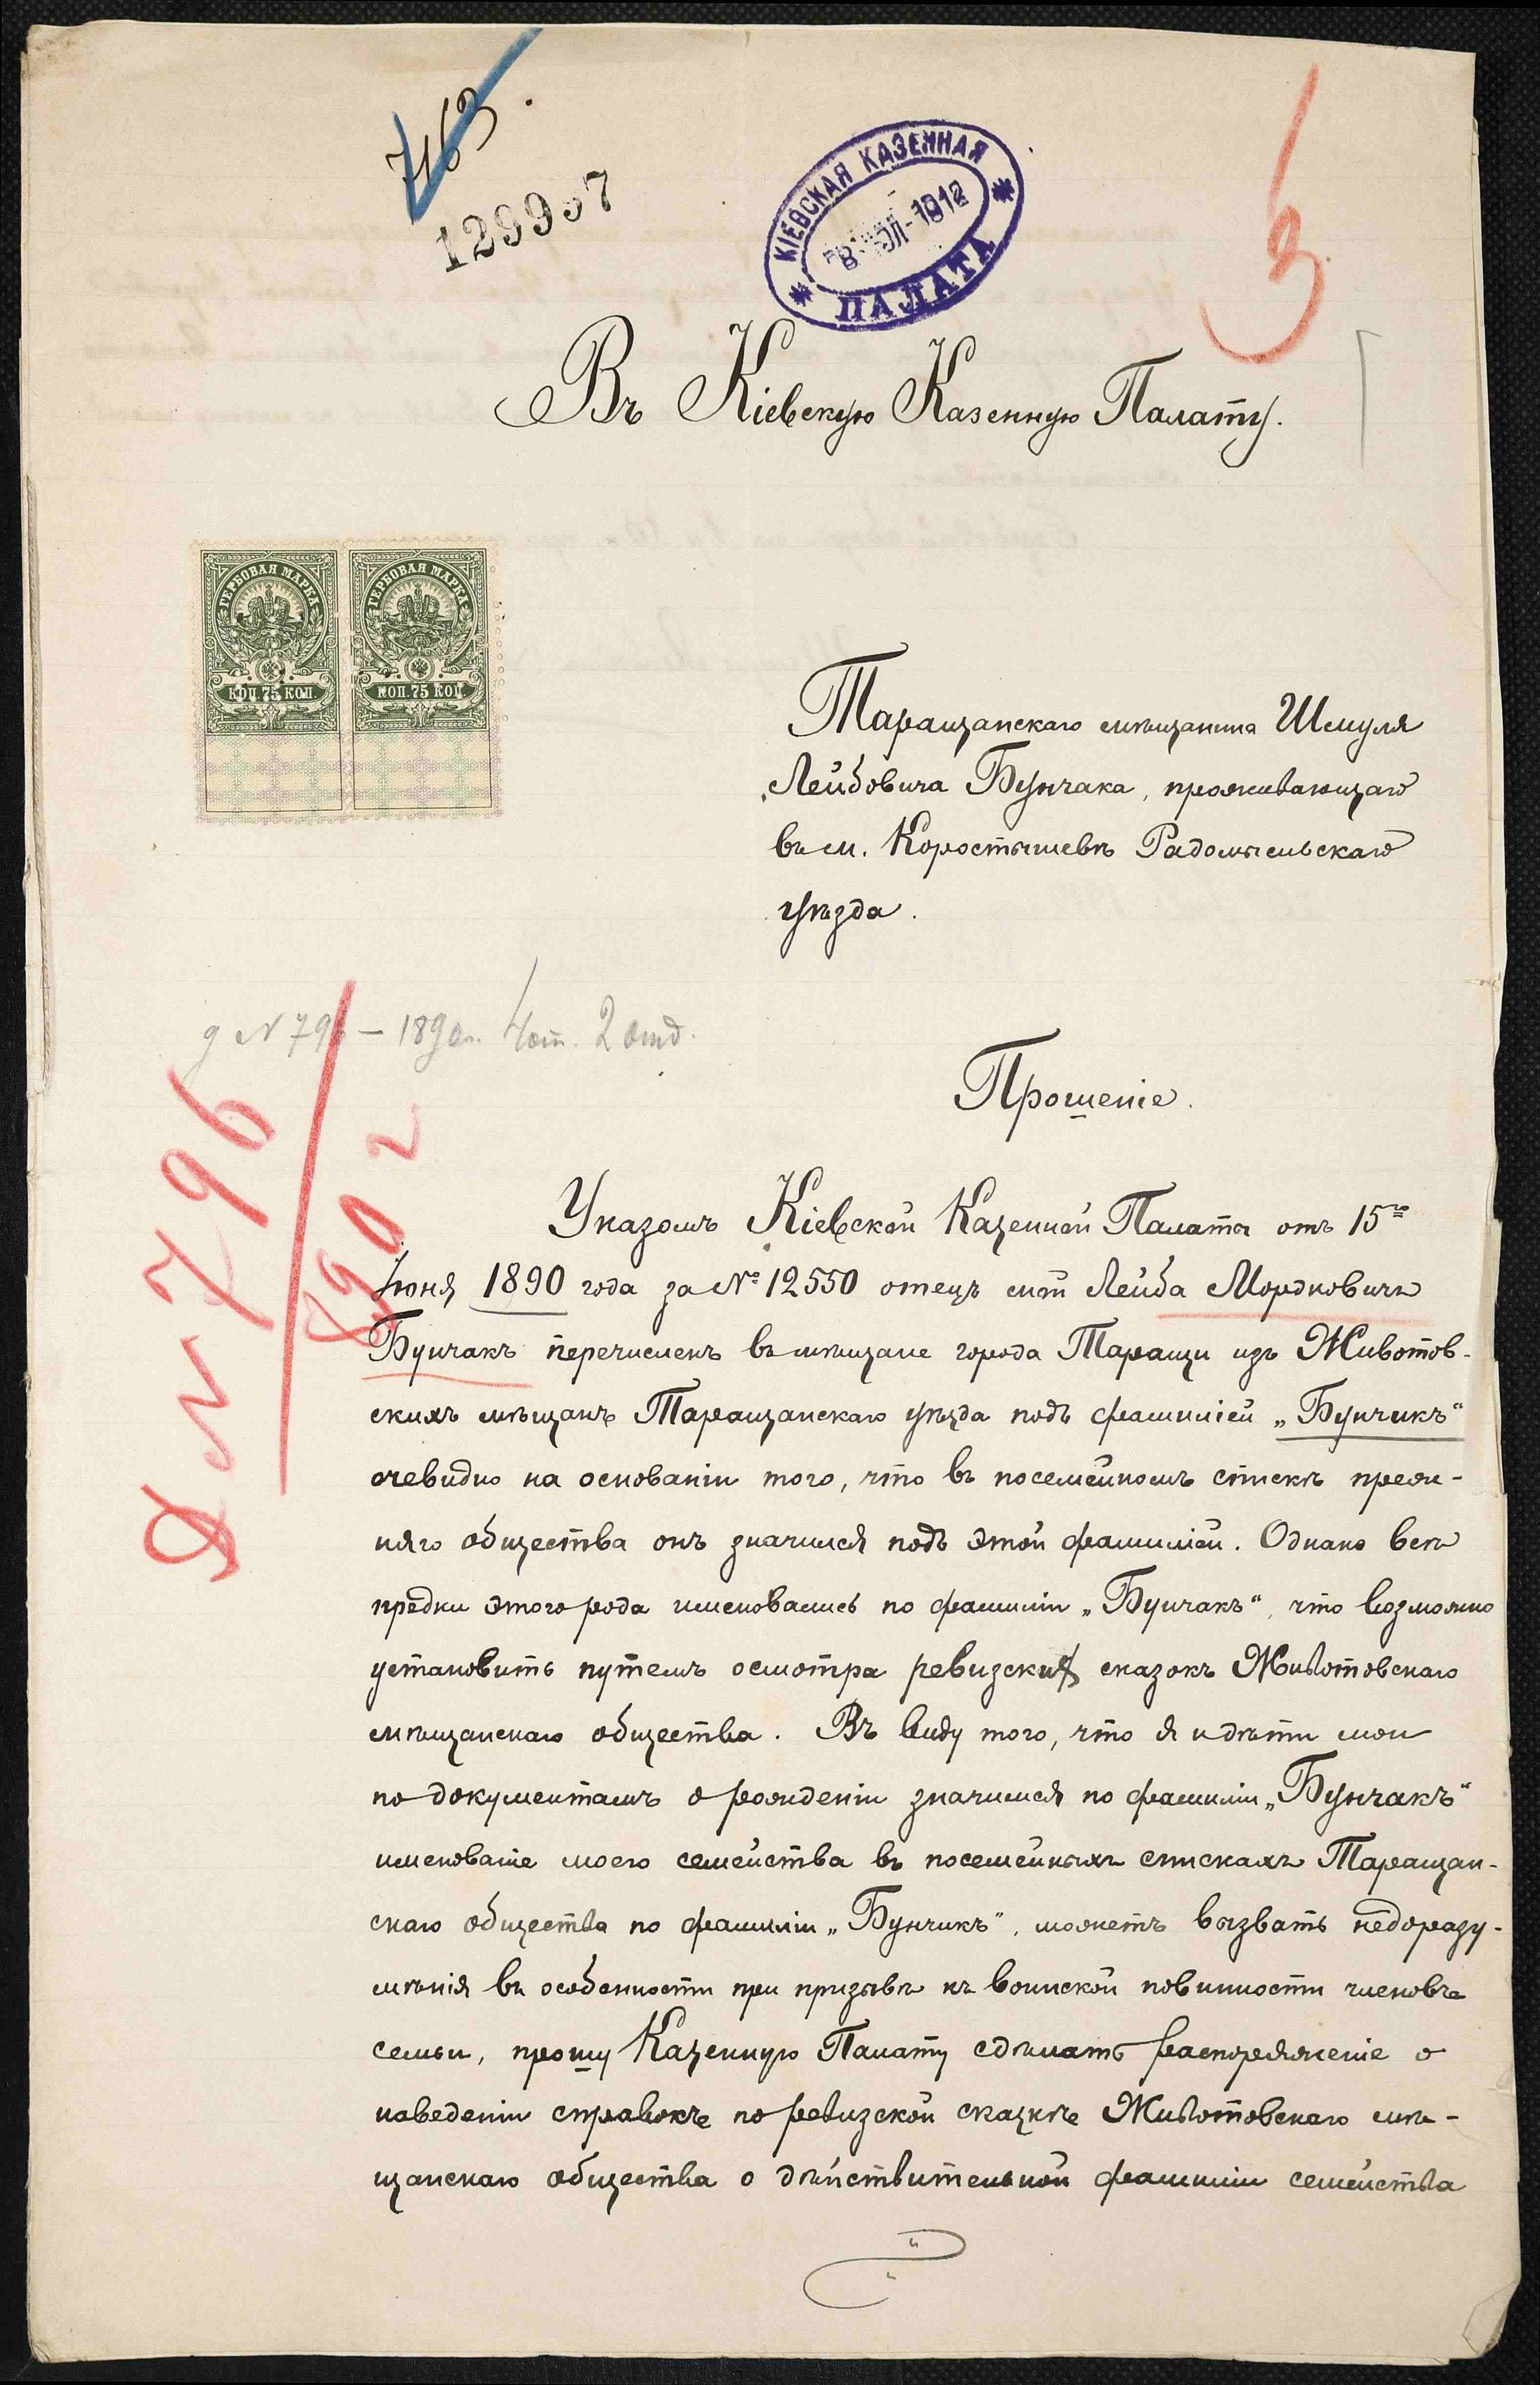 763.
129957
КІЕВСКАЯ КАЗЕННАЯ
1912
ПАЛАТА
Въ Кіевскую Казенную Палату.
ГЕРБОВАЯ МАРКА ГЕРБОВАЯ МАРКА
КОП. 75 КОП. КОП. 75 КОП.
Таращанскаго мѣщанина Шмуля
Лейбовича Бунчака, проживающаго
въ м. Коростышевѣ Радомысльскаго
уѣзда.
д № 796 – 1890 г. 2 отд.
Д № 796
890 г
Прошеніе.
Указомъ Кіевской Казенной Палаты отъ 15го
Іюня 1890 года за № 12550 отецъ мой Лейба Мордковичъ
Бунчакъ перечисленъ въ мѣщане города Таращи изъ Животов-
скихъ мѣщанъ Таращанскаго уѣзда подъ фамиліей „Бунчикъ“
очевидно на основаніи того, что въ посемейномъ спискѣ преж-
няго общества онъ значился подъ этой фамиліей. Однако всѣ
предки этого рода именовались по фамиліи „Бунчакъ“, что возможно
установить путемъ осмотра ревизскихъ сказокъ Животовскаго
мѣщанскаго общества. Въ виду того, что я и дѣти мои
по документамъ о рожденіи значимся по фамиліи „Бунчакъ“
именованіе моего семейства въ посемейныхъ спискахъ Таращан-
скаго общества по фамиліи „Бунчикъ“, можетъ вызвать недоразу-
мѣнія въ особенности при призывѣ къ воинской повинности членовъ
семьи, прошу Казенную Палату сдѣлать распоряженіе о
наведеніи справокъ по ревизской сказкѣ Животовскаго мѣ-
щанскаго общества о дѣйствительной фамиліи семейства